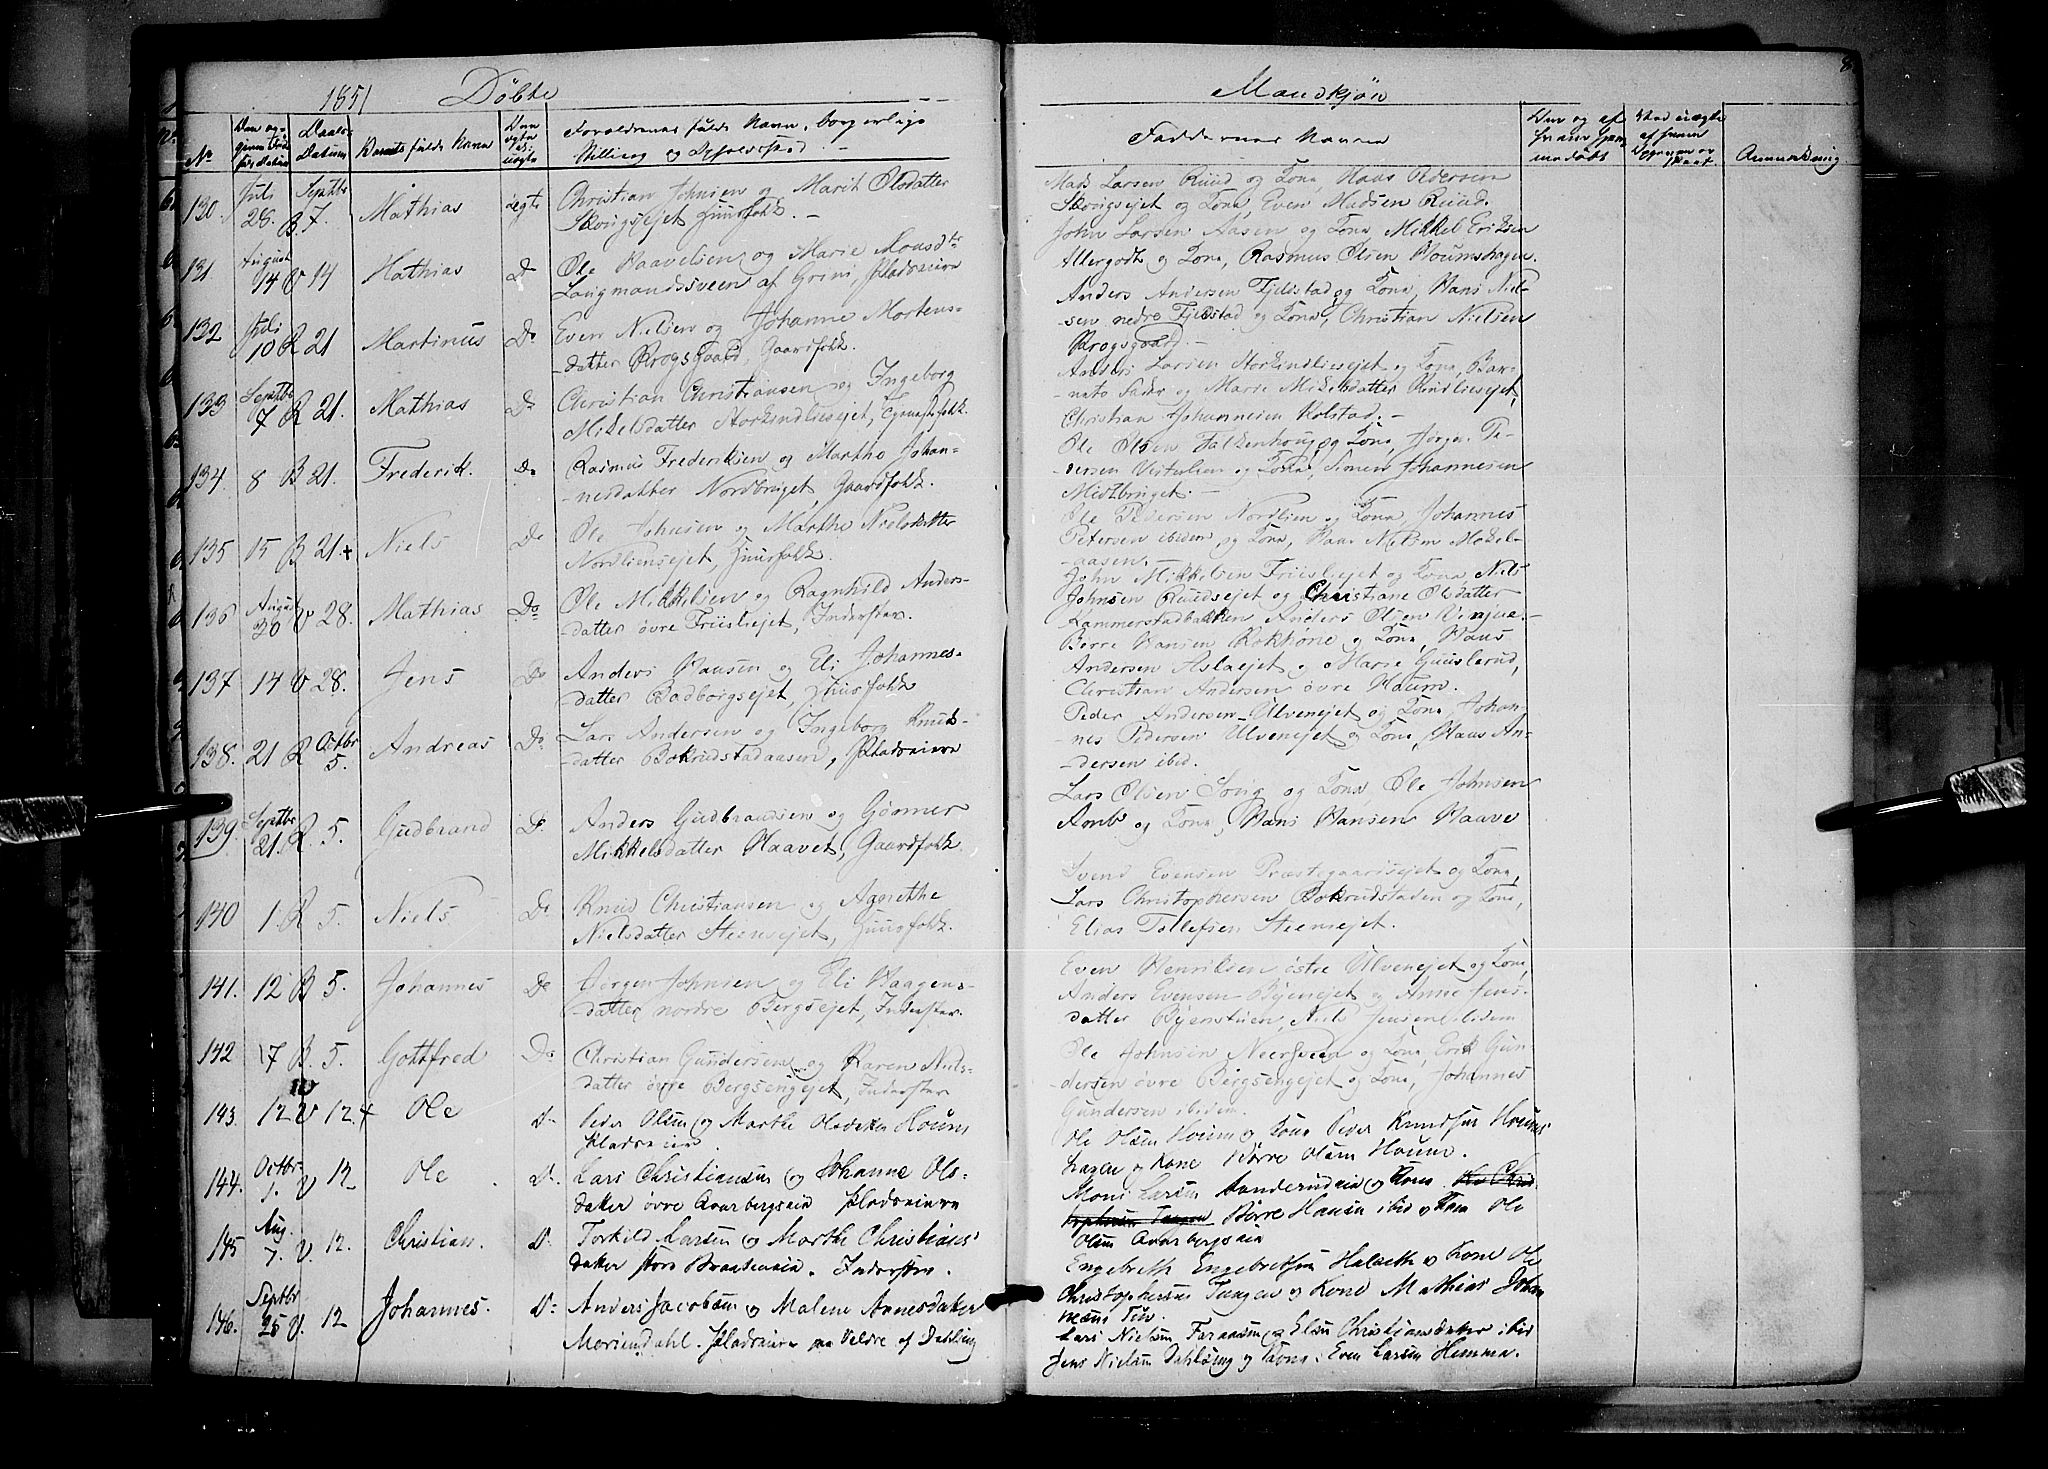 1851 Döbte
Mandkjön
8
No
Barnets fulde Navn
Foreldrenes fulde Navn, borgerlige
Stilling og Opholdssted
Faddernes Navne
Anmærkning
130. Juli 28. B. Septbr 7. Mathias ægte Christian Johnsen og Marit Olsdatter
Skougsejet Huusfolk.
Mads Larsen Ruud og Kona, Hans Pedersen
Skougsejet og Kona, Even Madsen Ruud.
131. August 14 V 14 Mathias Do Ole Paavelsen og Marie Monsdtr
Langmandssveen af Grini, Pladseiere
John Larsen Aasen og Kona Mikkel Eriksen
Allergodt og Kona, Rasmus Olsen Houmshagen.
132 Juli 10 R 21 Martinus Do Even Nielsen og Johanne Mortens-
datter Krogsgaard, Gaardfolk.
Anders Andersen Fjeldstad og Kona, Hans Niel-
sen nedre Fjeldstad og Kona, Christian Nielsen
Krogsgaard.
133 Septbr 7 R 21. Mathias Do Christian Christiansen og Ingeborg
Mikelsdatter Storkindliesejet,
Anders Larsen Storkindliesejet og Kona, Bar-
nets Fader og Marie Mikelsdatter Kindliesejet,
Christian Johannesen Kolstad.
134. 8 B 21. Frederik. Do Rasmus Frederiksen og Marthe Johan-
nesdatter Nordbryet, Gaardfolk.
Ole Olsen Falkenhoug og Kona, Jörgen Pe-
dersen Vestulien og Kona, Simen Johannesen
Midtbryet.
135 15 B 21+ Niels Do Ole Johnsen og Marthe Nielsdatter
Nordliensejet, Huusfolk.
Ole Pedersen Nordlien og Kona, Johannes
Petersen ibidem og Kona, Hans Nielsen Mækel-
aasen.
136 August 30 V 28. Mathias Do Ole Mikkelsen og Ragnhild Anders-
datter övre Friisliejet, Inderster.
John Mikkelsen Friisliejet og Kona, Niels
Johnsen Ruudsejet og Christiane Olsdatter
Kammerstadbakken Anders Olsen
137 14 V 28. Jens Do Anders Hansen og Eli Johannes-
datter Badborgsejet, Huusfolk
Börre Hansen Kokhöne og Kona, Hans
Andersen Aslaejet og Marie Guuslerud,
Christian Andersen övre Houm.
138. 21 R Octbr 5. Andreas Do Lars Andersen og Ingeborg Knuds-
datter Bokrudstadaasen, Pladseiere
Peder Andersen Ulvenejet og Kona, Johan-
nes Pedersen Ulvenejet og Kona, Hans An-
dersen ibid.
139. Septbr 21. R. 5. Gudbrand Do Anders Gudbrandsen og Gönner
Mikkelsdatter Haavet, Gaardfolk
Lars Olsen Soug og Kona, Ole Johnsen
Amb og Kona, Hans Hansen Haave
140 1. R 5. Niels Do Knud Christiansen og Agnethe
Nielsdatter Steensejet, Huusfolk.
Svend Evensen Præstegaardsejet og Kona,
Lars Christophersen Bokrudstaden og Kona,
Elias Tollefsen Steensejet.
141. 12 B 5. Johannes Do Jörgen Johnsen og Eli Haagens-
datter nordre Bergsejet, Inderster.
Even Henriksen östre Ulvenejet og Kona,
Anders Evensen Byenejet og Anne Jens-
datter Byenstuen, Niels Jensen ibidem
142 17 B. 5. Gottfred Do Christian Gundersen og Karen Niels-
datter övre Bergsengejet, Inderster
Ole Johnsen Neersveen og Kona, Erik Gun-
dersen övre Bergsengejet og Kona, Johannes
Gundersen ibidem.
143. 12 V 12.+ Ole Do Peder Olsen og Marthe Olsdatter Houms
Pladseiere
Ole Olsen Houm og Kona Peder Knudsen Houms-
hagen og Kone Börre Olsen Houm.
144. Octbr 1. V 12 Ole Do Lars Christiansen og Johanne Ols-
datter övre Qvarbergseia Pladseiere
Mons Larsen Sanderudseia og Kone.
Börre Hansen ibid og Kona Ole
Olsen Qvarbergseia
145 Aug. 7. V. 12. Christian. Do Torkild Larsen og Marthe Christians-
datter store Braateneia. Inderster.
Engebreth Engebretsen Halseth og Kone Ole
Christophersen Tangen og Kone Mathias Johan
nesen
146. Septbr 25 V. 12 Johannes. Do Anders Jacobsen og Malene Annesdatter
Moriendahl. Pladseiere paa Veldre af Dehling
Lars Nielsen Faraasen og Elsa Christiansdatter ibid
Jens Nielsen Dehling og Kona. Even Larsen Hemma.